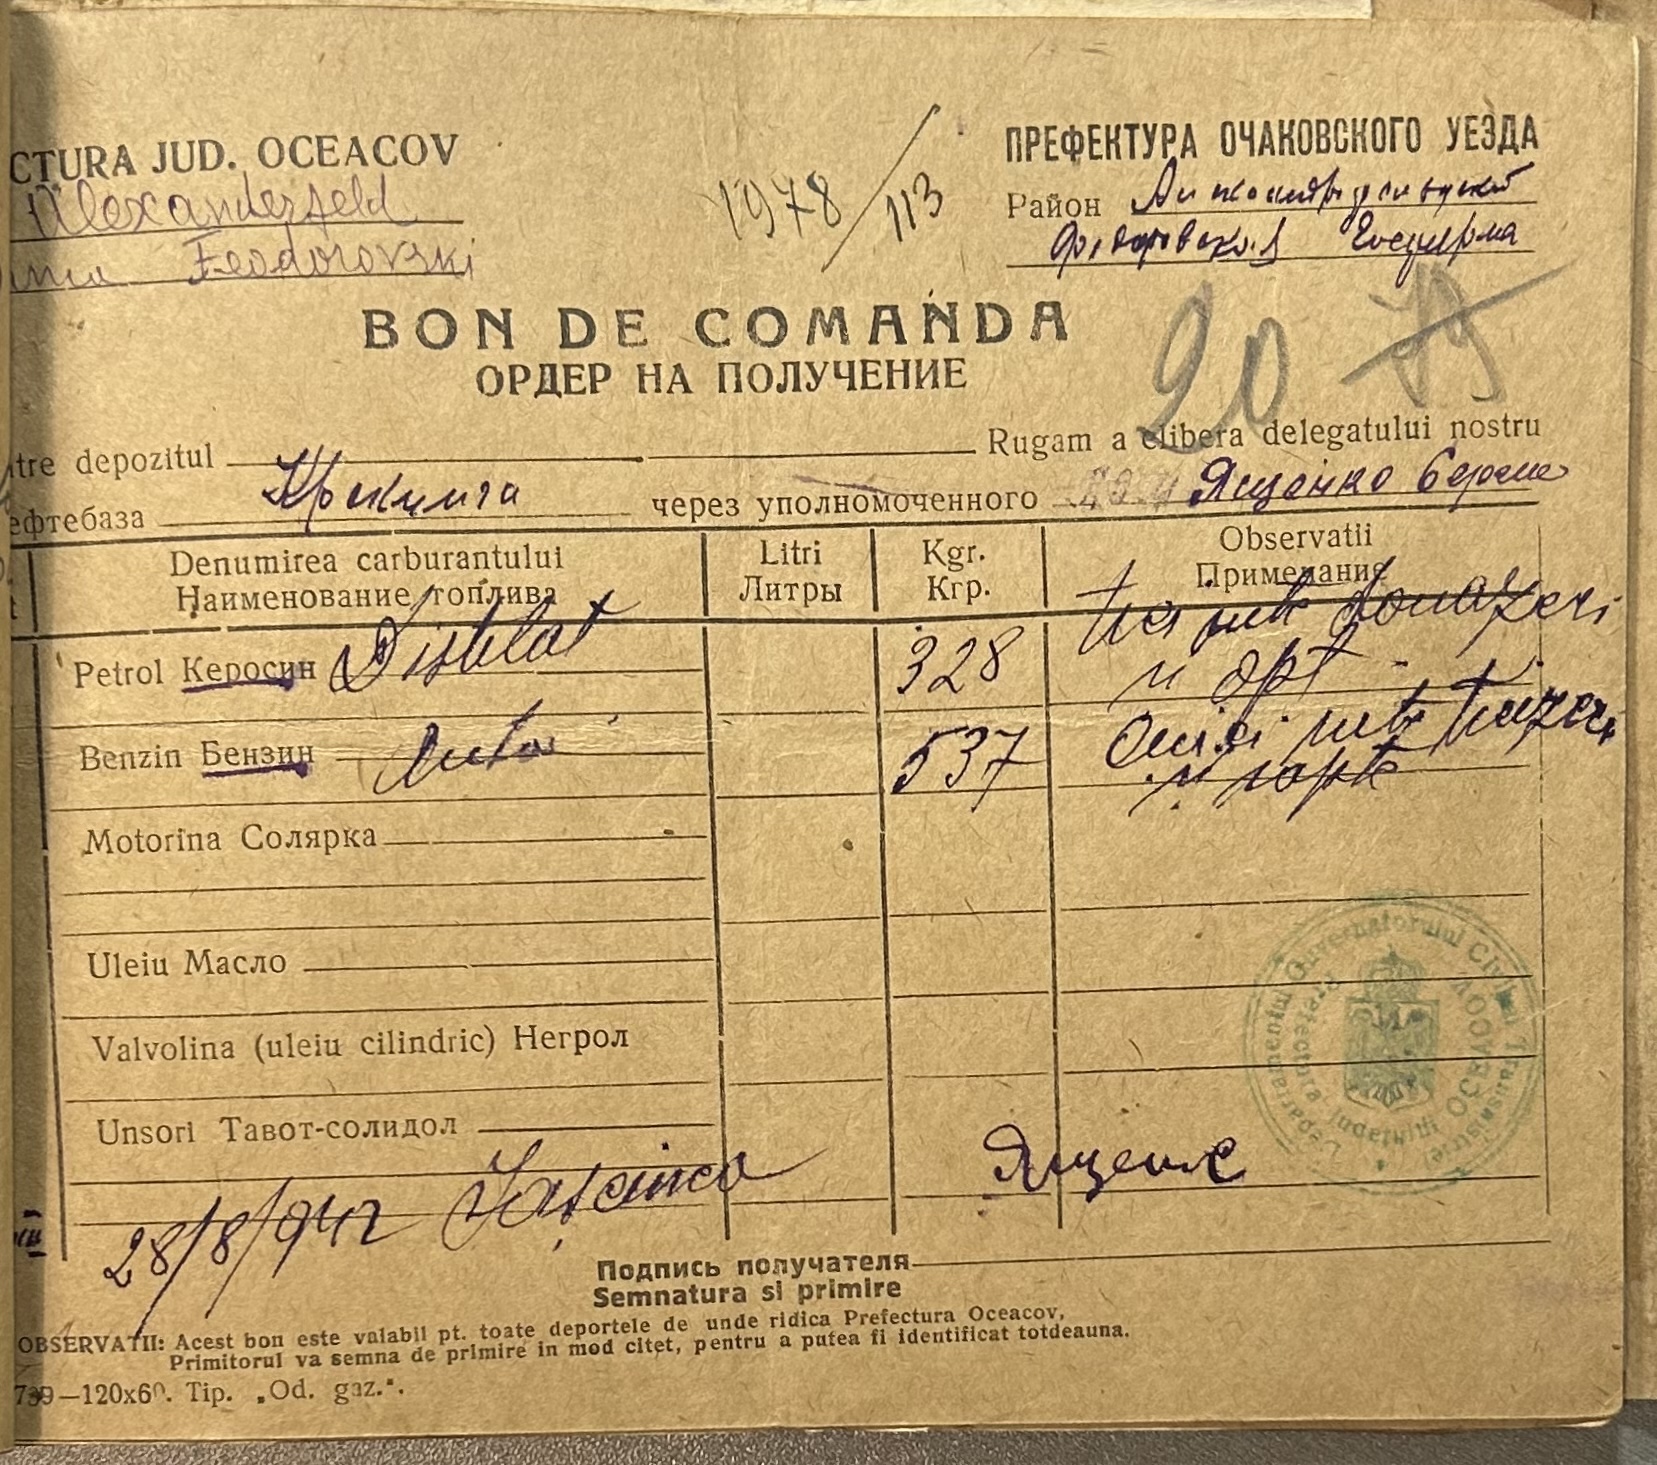 CTURA JUD. OCEACOV
Alexanderfeld
Feodorovski
1978/113
ПРЕФЕКТУРА ОЧАКОВСКОГО УЕЗДА
Район
BON DE COMANDA
ОРДЕР НА ПОЛУЧЕНИЕ
20
tre depozitul Rugam a elibera delegatului nostru
ефтебаза через уполномоченного Ященко
Denumirea carburantului Litri Kgr. Observatii
Наименование топлива Литры Кгр. Примечание
Petrol Керосин Distilat 328
Benzin Бензин 537
Motorina Солярка
Uleiu Масло
Valvolina (uleiu cilindric) Негрол
Unsori Тавот-солидол
Departamentul Guvernatorul Civil al Transnistriei
Prefectura Județului OCEACOV
28/8/942
Подпись получателя
Semnatura si primire
OBSERVATII: Acest bon este valabil pt. toate deportele de unde ridica Prefectura Oceacov,
Primitorul va semna de primire in mod citet, pentru a putea fi identificat totdeauna.
739—120x60. Tip. „Od. gaz.".